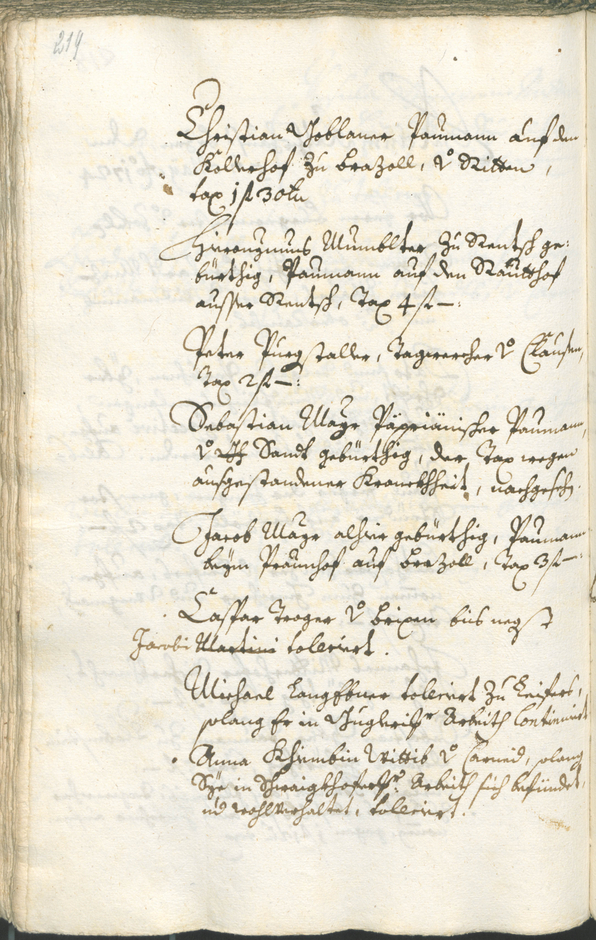 219
Christian Goblaner Paumann auf den
Kollerhof zu Brazoll, v Ritten,
tax 1 fl 30 kr
Hieronymus Mumblter zu Rentsch ge:
bürthig, Paumann auf den Rautthof
ausser Rentsch, Tax 4 fl —:
Peter Purgstaller, Tagwercher v Clausen,
Tax 2 fl —:
Sebastian Mayr Päprianischer Paumann,
v Sandt gebürthig, der Tax wegen
ausgestandener Kranckhheit, nachgesehn.
Jacob Mayr alhier gebürthig, Paumann
beÿm Praunhof auf Brazoll, Tax 3 fl —
Caspar Troger v Brixen bis negst
Jacobi Martini tolleriert.
Michael Langebner tolleriert zu Leifers,
solang Er in Arbeith Continuiert
Anna Wittib v Carneid, solang
Sye in Arbeith sich befündet,
und wohlverhaltet, tolleriert.